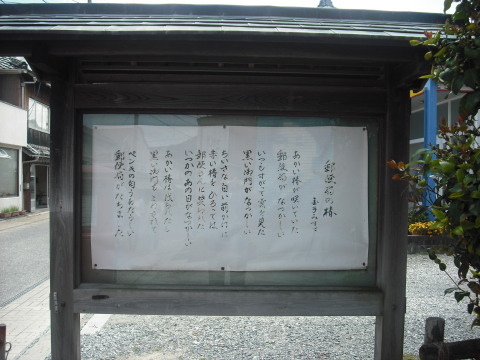 郵便局の椿
みすゞ
あかい椿が咲いていた、
郵便局がなつかしい。
いつもすがって雲を見た
黒い御門がなつかしい。
ちいさな白い前かけに、
赤い椿をひろっては、
郵便さんに笑われた
いつかのあの日がなつかしい。
あかい椿は
黒い御門も
ペンキの匂うあたらしい
郵便局がたちました。